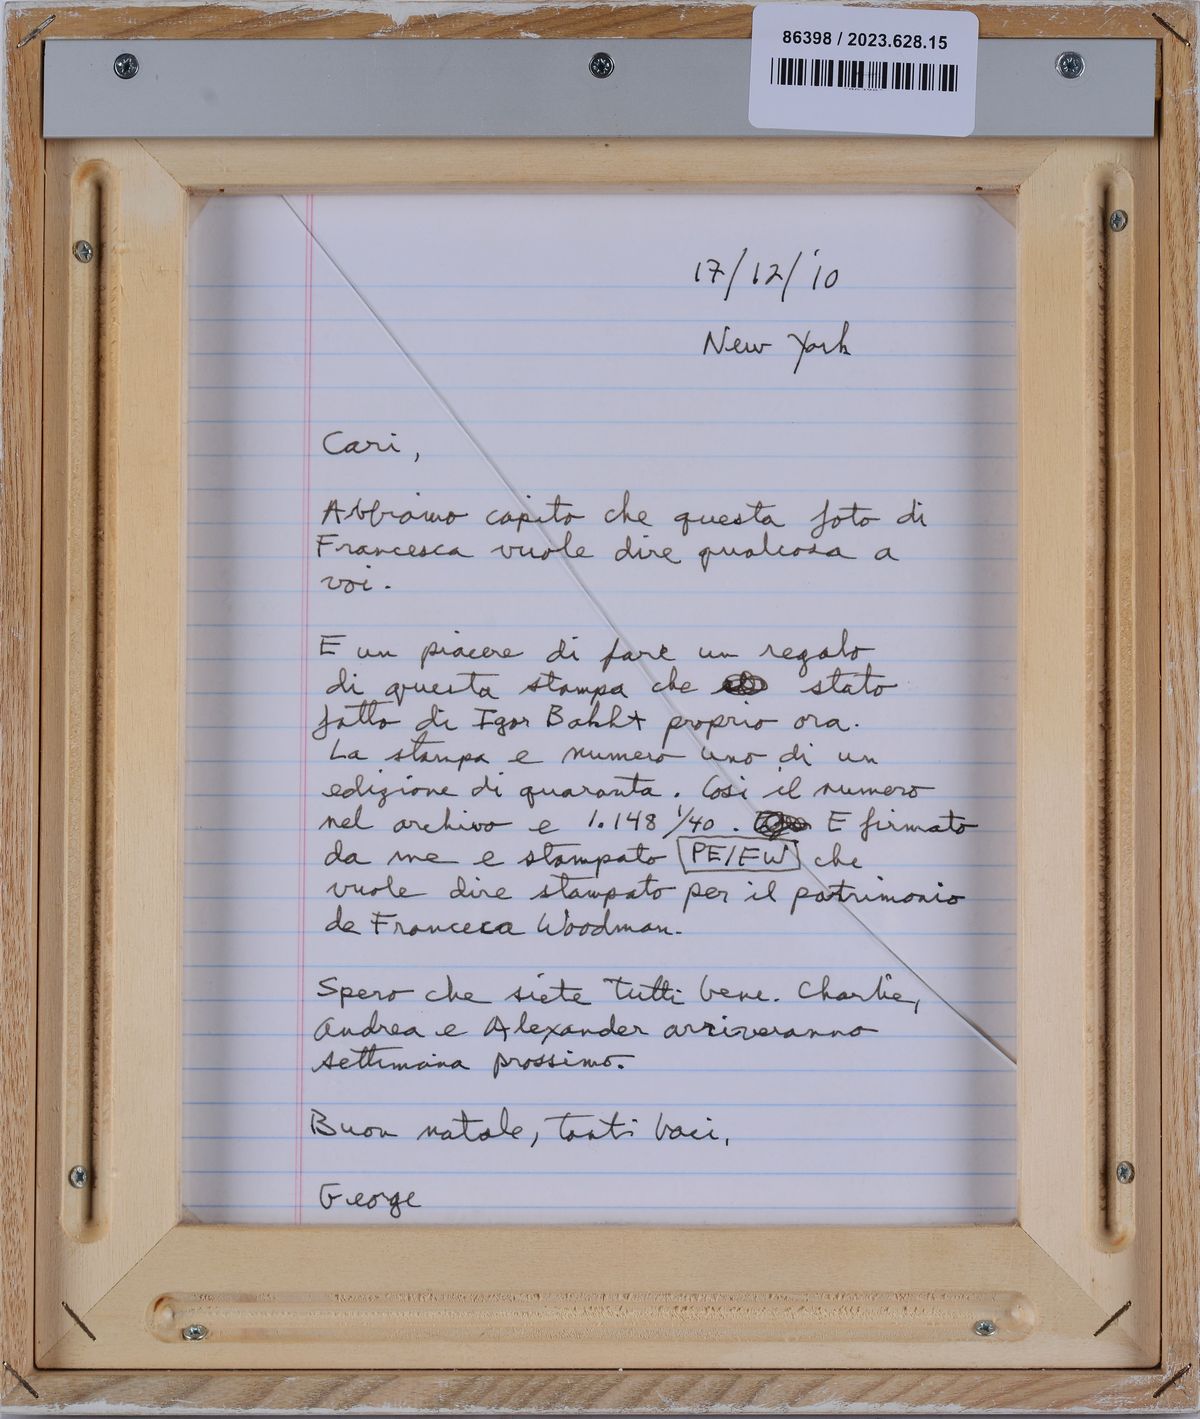 86398 / 2023.628.15
17/12/'10
New York
Cari,
Abbiamo capito che questa foto di
Francesca vuole dire qualcosa a
voi.
E un piacere di fare un regalo
di questa stampa che stato
fatto di Igor Bakht proprio ora.
La stampa e numero uno di un
edizione di quaranta. Così il numero
nel archivo e 1.148 1/40. E firmato
da me e stampato PE/FW che
vuole dire stampato per il patrimonio
de Franceca Woodman.
Spero che siete tutti bene. Charlie,
Andrea e Alexander arriveranno
settimana prossimo.
Buon natale, tanti baci,
George